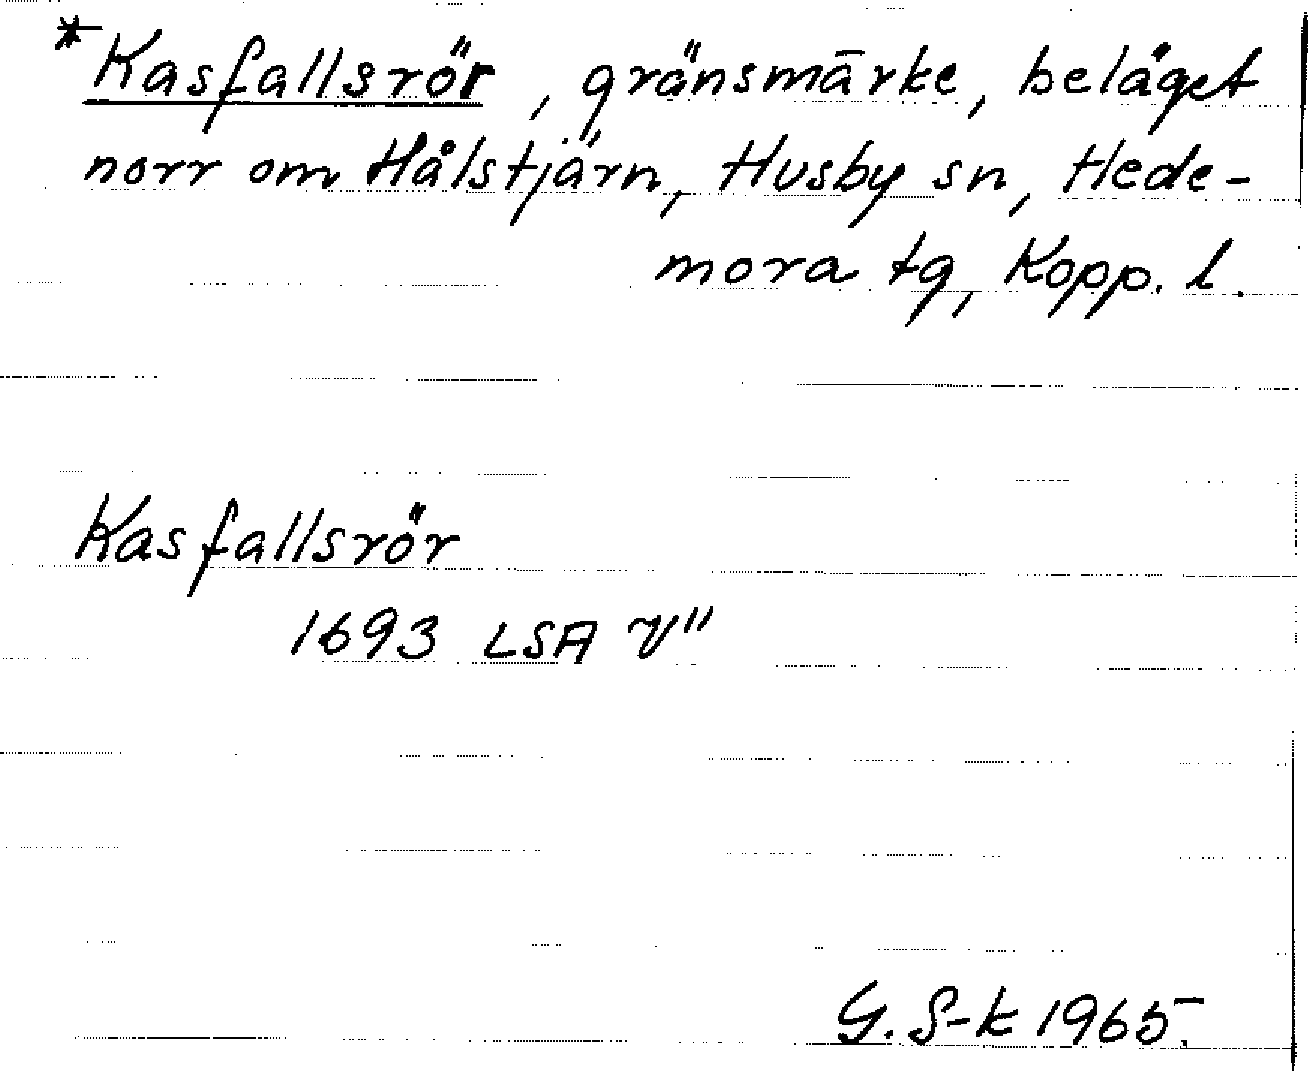 *Kasfallsrör, gränsmärke, beläget
norr om Hålstjärn, Husby sn, Hede-
mora tg, Kopp. l.
Kasfallsrör
1693 LSA V"
G. S-k 1965.